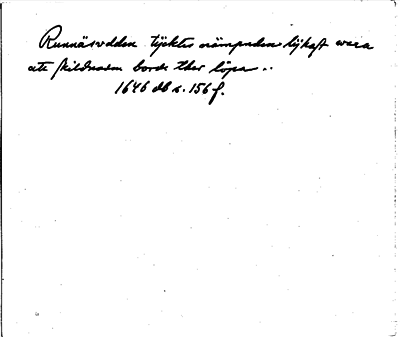 Runnäsudden tÿcktes nämpnden lÿkast wara
att skildnaden borde ther löpa ..
1646 db s. 156 f.